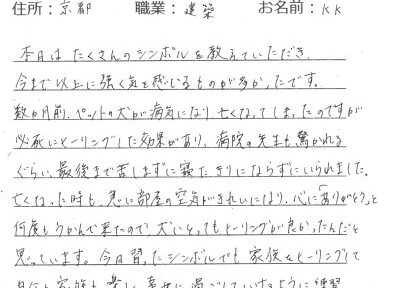 住所：京都　職業：建築　お名前：KK
本日はたくさんのシンボルを教えていただき、
今まで以上に強く気を感じるものが多かったです。
数か月前、ペットの犬が病気になり亡くなってしまったのですが
必死にヒーリングした効果があり、病院の先生も驚かれる
ぐらい、最後まで苦しまずに寝たきりにならずにいられました。
亡くなった時も、急に部屋の空気がきれいになり、心に「ありがとう」と
何度もうかんで来たので犬にとってもヒーリングが良かったんだと
思っています。今日習ったシンボルでも家族をヒーリングして
自分も家族も楽しく幸せに過ごしていけるように練習